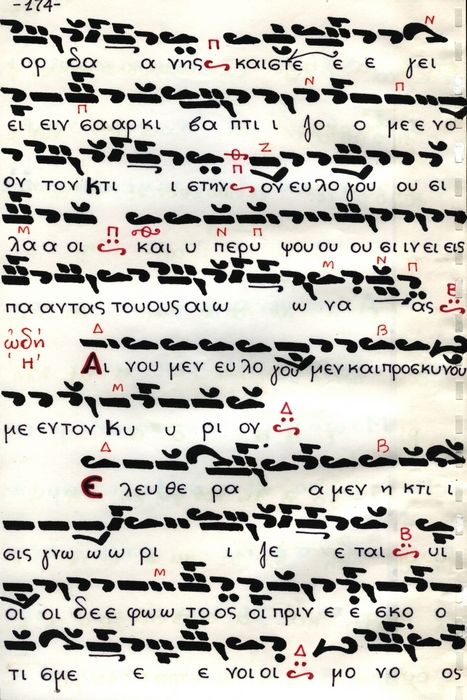 -174-
ορ δα α νης και στε ε ε γει
ει ειν σααρκι βα πτι ζο ο με ε νο
ον τον κτι ι στην ον ευ λο γου ου σι
λα α οι και υ περυ ψου ου ου σι ιν ει εις
πα αντας του ους αι ω ω να ας
ὠδή Αι νου μεν ευ λο γου μεν και προσκυνου
Ή
με εν τον κυ υ ρι ον
Ε λευ θε ρα α μεν η κτι ι
σις γνω ω ω ρι ι ζε ε ται υι
οι οι δε ε φω ω το ος οι πριν ε ε σκο ο
τι σμε ε ε νοι οι μο νο ος